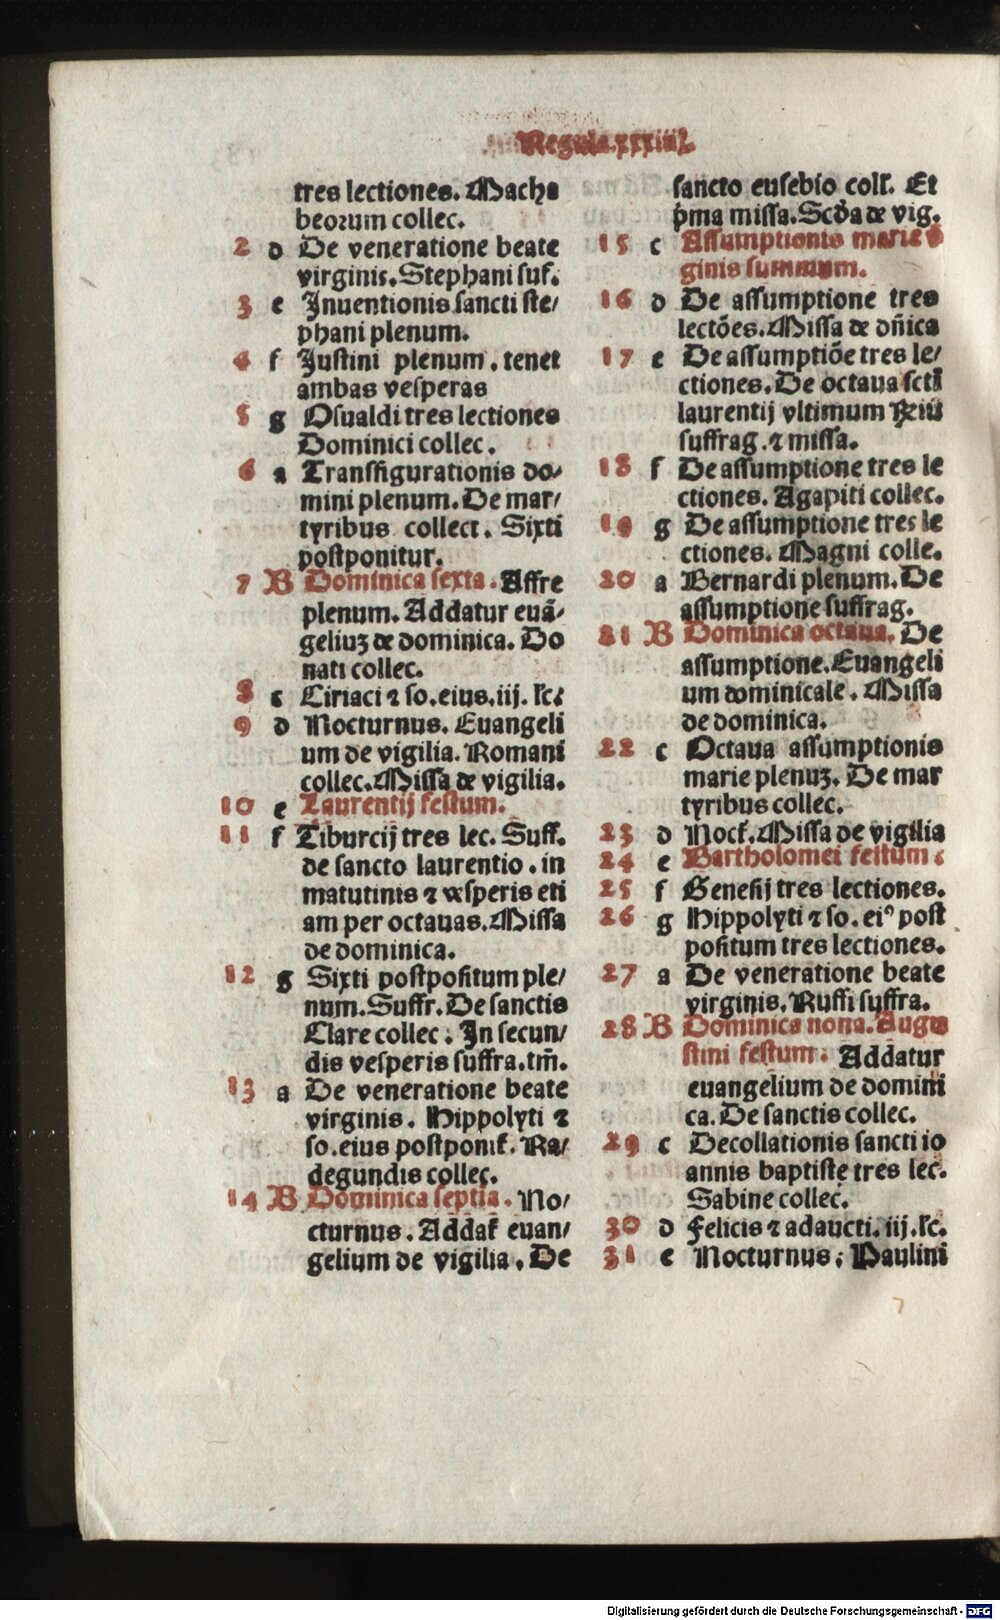 Regula.xxxiiij.
tres lectiones. Macha
beorum collec.
2 d De veneratione beate
virginis. Stephani suf.
3 e Inuentionis sancti ste/
phani plenum.
4 f Justini plenum. tenet
ambas vesperas
5 g Osualdi tres lectiones
Dominici collec.
6 a Transfigurationis do/
mini plenum. De mar/
tyribus collect. Sixti
postponitur.
7 B Dominica sexta. Affre
plenum. Addatur euã/
geliuȝ de dominica. Do
nati collec.
8 c Ciriaci ⁊ so. eius. iij. lc.
9 d Nocturnus. Euangeli
um de vigilia. Romani
collec. Missa de vigilia.
10 e Laurentij festum.
11 f Tiburcij tres lec. Suff.
de sancto laurentio. in
matutinis ⁊ vesperis eti
am per octauas. Missa
de dominica.
12 g Sixti postpositum ple/
num. Suffr. De sanctis
Clare collec: In secun/
dis vesperis suffra. tm̃.
13 a De veneratione beate
virginis. Hippolyti ⁊
so. eius postponit̃. Ra/
degundis collec.
14 B Dominica septia. No/
cturnus. Addat̃ euan/
gelium de vigilia. De
sancto eusebio coll. Et
p̃ma missa. Scd̃a de vig.
15 c Assumptionis marie v̓
ginis summum.
16 d De assumptione tres
lectões. Missa de dñica
17 e De assumptiõe tres le/
ctiones. De octaua sctĩ
laurentij vltimum
suffrag. ⁊ missa.
18 f De assumptione tres le
ctiones. Agapiti collec.
19 g De assumptione tres le
ctiones. Magni colle.
20 a Bernardi plenum. De
assumptione suffrag.
21 B Dominica octaua. De
assumptione. Euangeli
um dominicale. Missa
de dominica.
22 c Octaua assumptionis
marie plenuȝ. De mar
tyribus collec.
23 d Noct̃. Missa de vigilia
24 e Bartholomei festum:
25 f Genesij tres lectiones.
26 g Hippolyti ⁊ so. eiꝰ post
positum tres lectiones.
27 a De veneratione beate
virginis. Ruffi suffra.
28 B Dominica nona. Augu
stini festum. Addatur
euangelium de domini
ca. De sanctis collec.
29 c Decollationis sancti io
annis baptiste tres lec.
Sabine collec.
30 d Felicis ⁊ adaucti. iij. lc.
31 e Nocturnus: Paulini
Digitalisierung gefördert durch die Deutsche Forschungsgemeinschaft - DFG